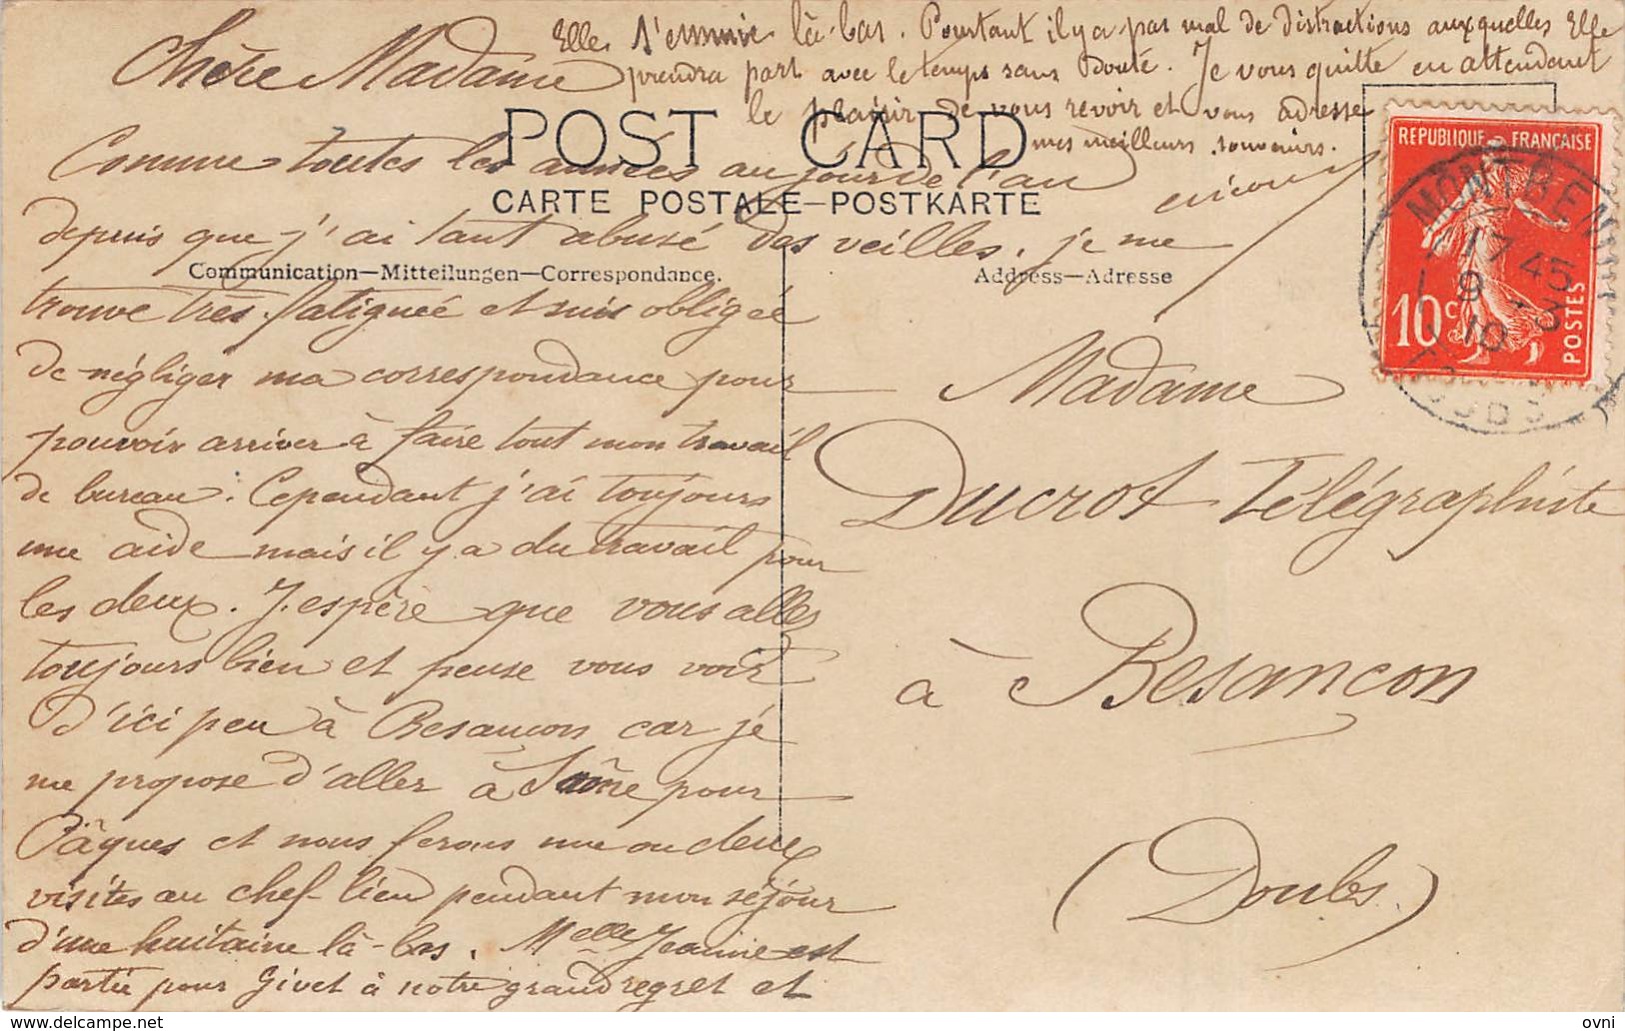 Chère Madame
Comme toutes les années au jour de l'an
depuis que j'ai tant abusé des veilles, je me
trouve très fatiguée et suis obligée
de négliger ma correspondance pour
pouvoir arriver à faire tout mon travail
de bureau. Cependant j'ai toujours
une aide mais il y a du travail pour
les deux. J'espère que vous allez
toujours bien et pense vous voir
d'ici peu à Besançon car je
me propose d'aller à Saône pour
Pâques et nous ferons une ou deux
visites au chef-lieu pendant mon séjour
d'une huitaine là-bas. Melle Jeanne est
partie pour Givet à notre grand regret et
Elle s'ennuie là-bas. Pourtant il y a pas mal de distractions auxquelles Elle
prendra part avec le temps sans doute. Je vous quitte en attendant
le plaisir de vous revoir et vous adresse
mes meilleurs souvenirs.
POST CARD
CARTE POSTALE–POSTKARTE
Communication—Mitteilungen—Correspondance.
Address—Adresse
REPUBLIQUE FRANÇAISE
10c
POSTES
17 45
9 -3
10
DOUBS
Madame
Ducrot Télégraphiste
à Besançon
(Doubs)
ovni